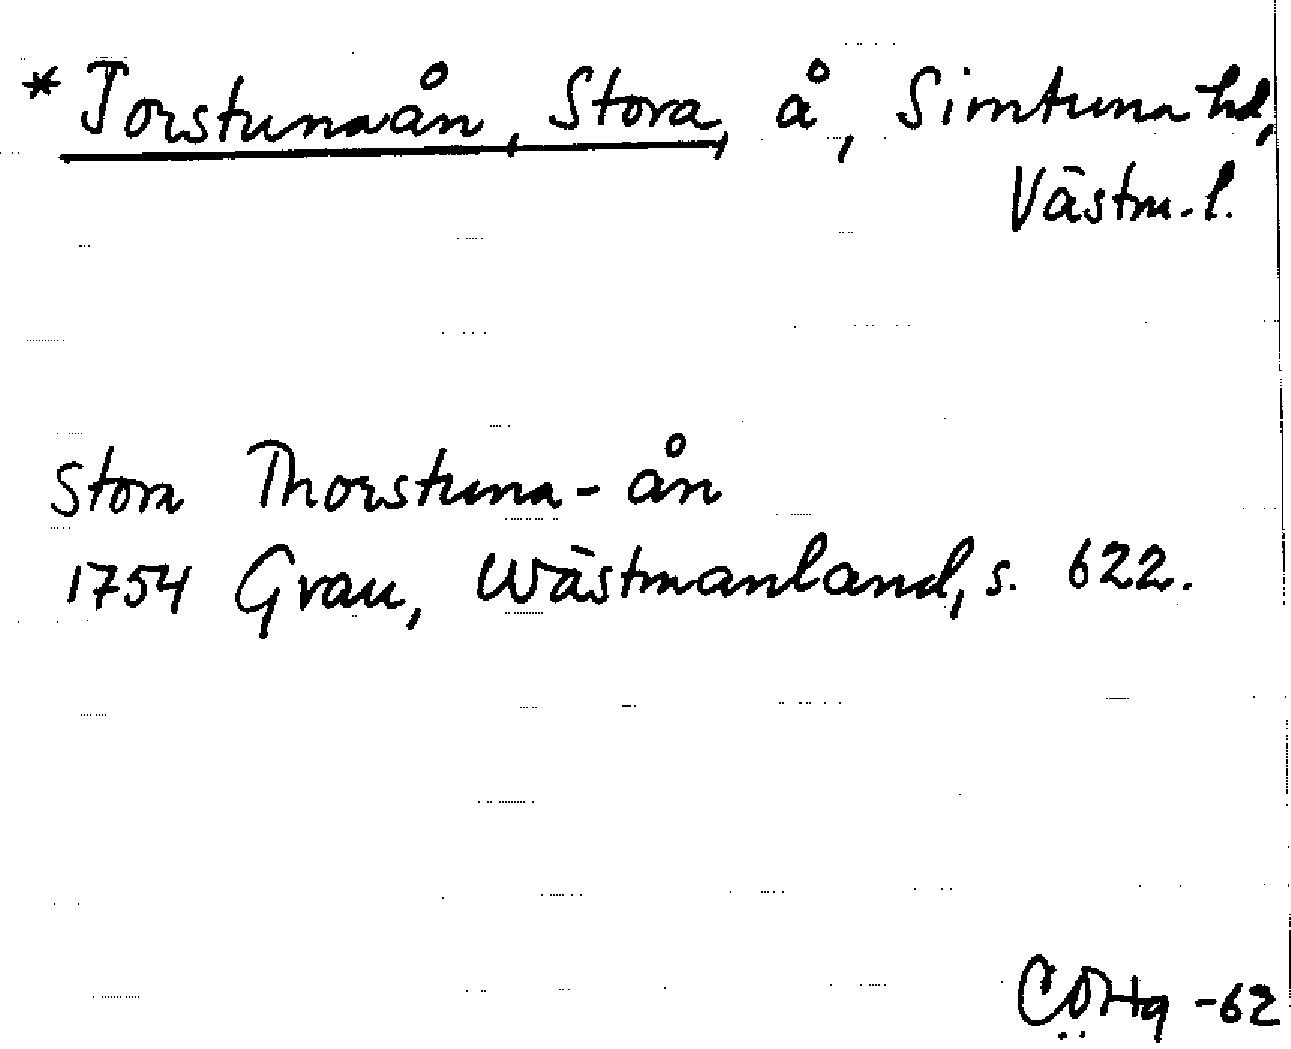 * Torstunaån, Stora, å, Simtuna hd,
Västm. l.
Stora Thorstuna-ån
1754 Grau, Wästmanland, s. 622.
-62